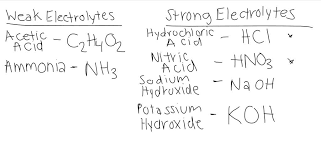 Weak Electrolytes
Acetic
Acid - C₂H₄O₂
Ammonia - NH₃
Strong Electrolytes
Hydrochloric
Acid - HCl
Nitric
Acid - HNO₃
Sodium
Hydroxide - NaOH
Potassium
Hydroxide - KOH